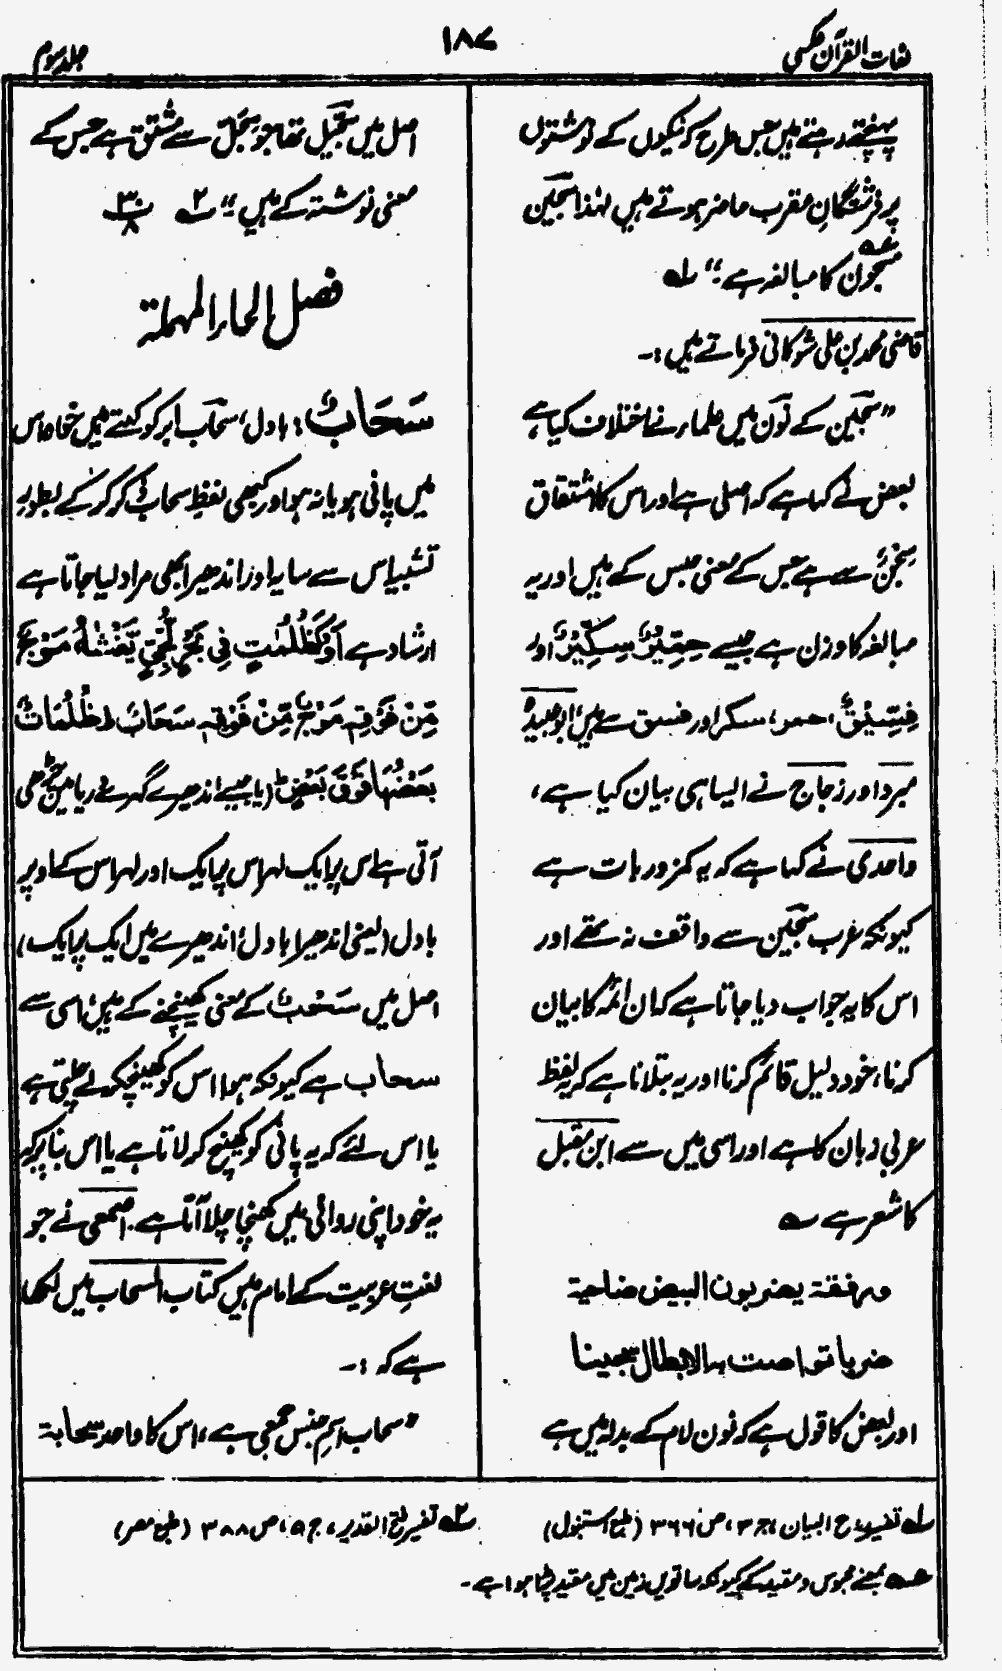 لغات القرآن عکسی
۱۸۷
جلد سوم
پہنچتے رہتے ہیں جس طرح کہ نیکوں کے نوشتوں
پر فرشتگانِ مقرب حاضر ہوتے ہیں لہٰذا سجّین
مسجون کا مبالغہ ہے ؛“ لہ
قاضی محمد بن علی شوکانی فرماتے ہیں :۔
”سجّین کے نون میں علماء نے اختلاف کیا ہے
بعض نے کہا ہے کہ اصلی ہے اور اس کا اشتقاق
سِجْنٌ سے ہے جس کے معنی حبس کے ہیں اور یہ
مبالغہ کا وزن ہے جیسے خِمِّیْرٌ سِکِّیْرٌ اور
فِسِّیْقٌ، خمر، سکر اور فسق سے ہیں، ابو عبیدہ
مبرد اور زجاج نے ایسا ہی بیان کیا ہے،
واحدی نے کہا ہے کہ یہ کمزور بات ہے
کیونکہ عرب سجّین سے واقف نہ تھے اور
اس کا یہ جواب دیا جاتا ہے کہ ان ائمہ کا بیان
کرنا، خود دلیل قائم کرنا اور یہ بتلانا ہے کہ یہ لفظ
عربی زبان کا ہے اور اسی میں سے ابن مقبل
کا شعر ہے ؎
ورفقة يضربون البيض ضاحية
ضربا تواصت به الابطال سجينا
اور بعض کا قول ہے کہ نون لام کے بدلہ میں ہے
اصل میں سجّیل تھا جو سِجِلّ سے مشتق ہے جس کے
معنی نوشتہ کے ہیں ؛“ ۲ہ ۳۰/۸
فصل الحاء المہملۃ
سَحَابٌ؛ بادل، سحاب ابر کو کہتے ہیں خواہ اس
میں پانی ہو یا نہ ہو اور کبھی لفظِ سحاب ذکر کر کے بطور
تشبیہ اس سے سایہ اور اندھیرا بھی مراد لیا جاتا ہے
ارشاد ہے اَوْ کَظُلُمٰتٍ فِی بَحْرٍ لُّجِّیٍّ یَّغْشٰىہُ مَوْجٌ
مِّنْ فَوْقِہٖ مَوْجٌ مِّنْ فَوْقِہٖ سَحَابٌ ظُلُمَاتٌ
بَعْضُہَا فَوْقَ بَعْضٍ (یا جیسے اندھیرے گہرے دریا میں چڑھی
آتی ہے اس پر ایک لہر اس پر ایک اور لہر اس کے اوپر
بادل (یعنی اندھیرا بادل) اندھیرے ہیں ایک پر ایک)
اصل میں سَحْبٌ کے معنی کھینچنے کے ہیں، اسی سے
سحاب ہے کیونکہ ہوا اس کو کھینچکر لے چلتی ہے
یا اس لئے کہ یہ پانی کو کھینچ کر لاتا ہے یا اس بنا پر کہ
یہ خود اپنی روانی میں کھنچا چلا آتا ہے۔ اصمعی نے جو
لغتِ عربیت کے امام ہیں کتاب السحاب میں لکھا
ہے کہ :۔
”سحاب اسم جنس جمعی ہے، اس کا واحد سحابۃ
لہ تفسیر روح البیان، ج۴، ص ۳۶۶ (طبع استنبول)
۲ہ تفسیر فتح القدیر، ج ۵، ص ۳۸۸ (طبع مصر)
عہ بمعنے محبوس و مقید کے کیونکہ ساتویں زمین میں مقید پڑا ہوا ہے۔